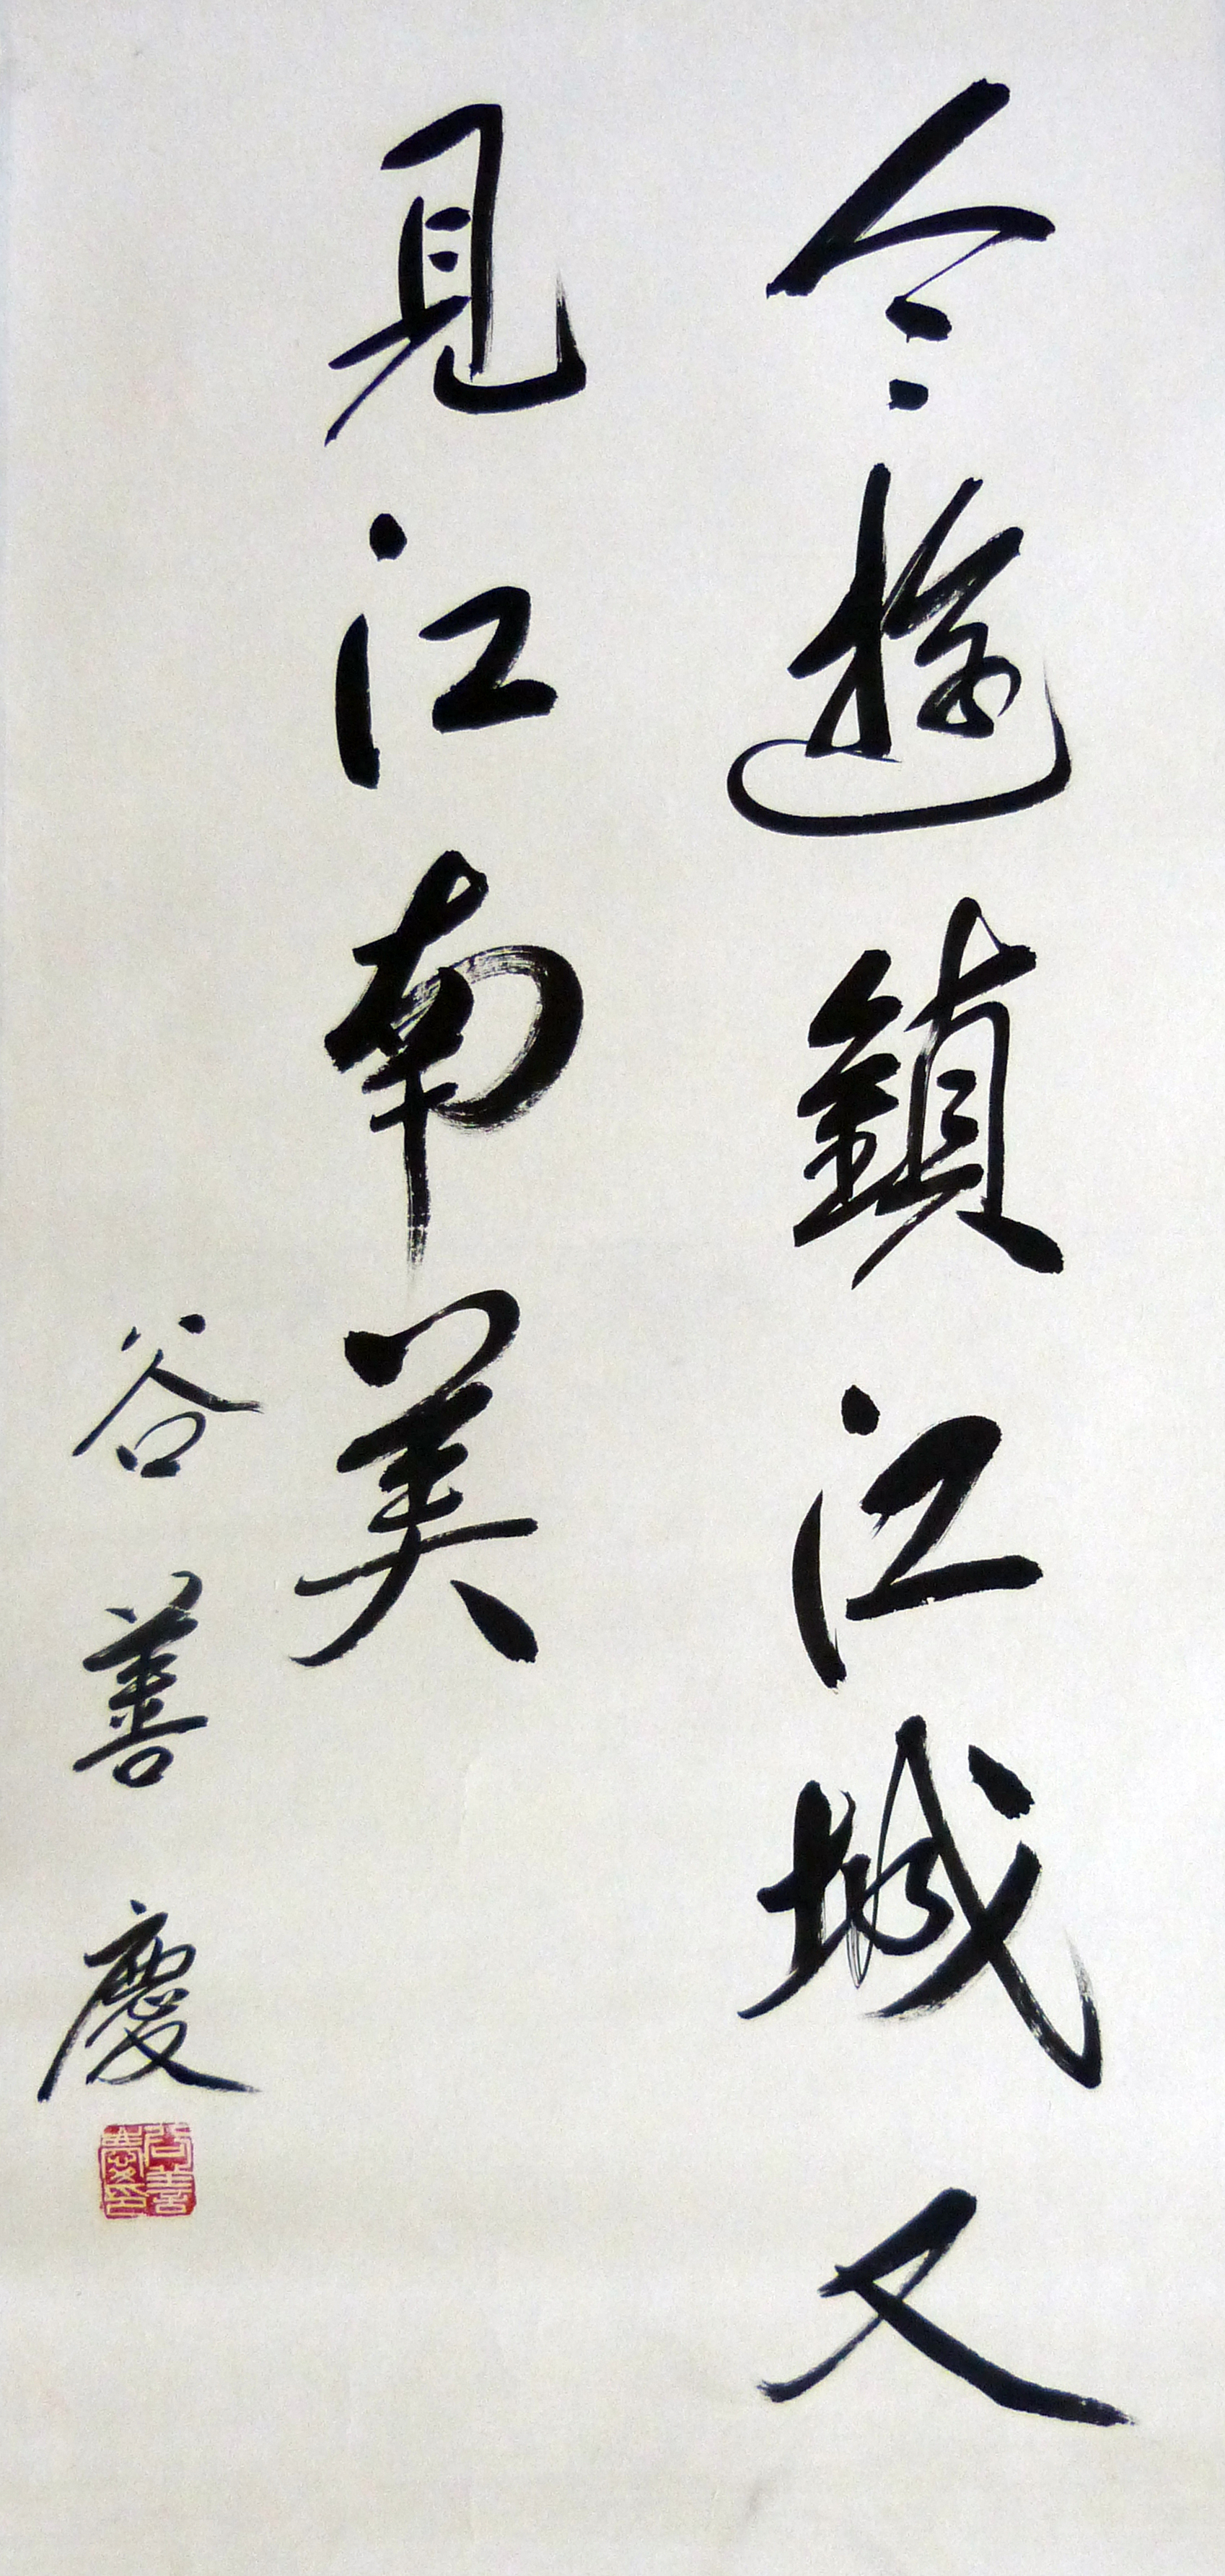 今遊鎮江城又
見江南美
谷善慶
谷善慶印